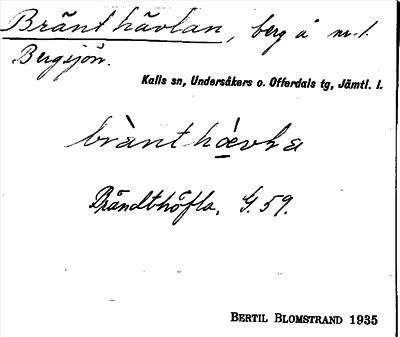 Bränthävlan, berg å nr. 1.
Bergsjön.
Kalls sn, Undersåkers o. Offerdals tg, Jämtl. l.
brànthǽvla
Brändthöfla, G. 59.
BERTIL BLOMSTRAND 1935